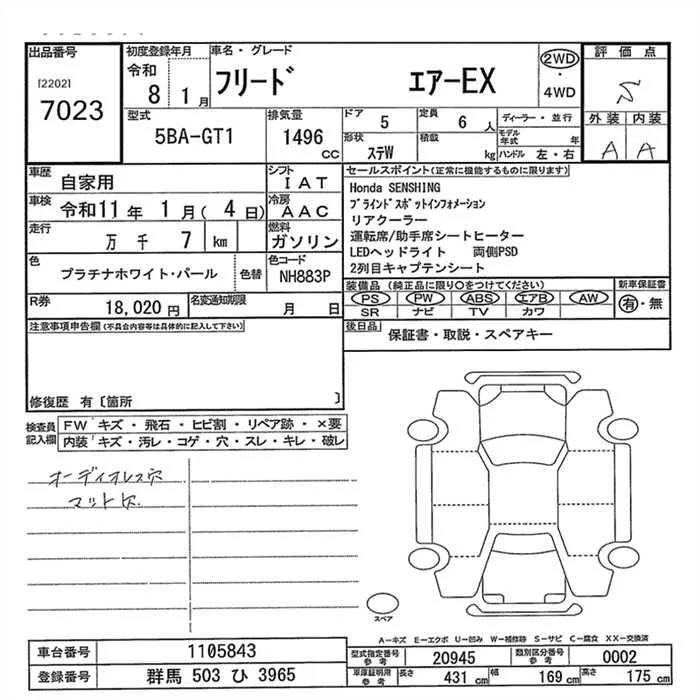 出品番号 初度登録年月 車名・グレード 評価点
[2202] 7023 令和 8 1月 フリード エアーEX 2WD・4WD S
外装 内装
A A
型式 5BA-GT1 排気量 1496 CC ドア 5 定員 6 人 ディーラー・並行
形状 ステW 積載 kg モデル年式 年 ハンドル 左・右
車歴 自家用 シフト IAT
車検 令和11年 1月(4日) 冷房 AAC
走行 万 千 7 km 燃料 ガソリン
色 プラチナホワイト・パール 色替 色コード NH883P
R券 18,020円 名変通知期限 月 日
セールスポイント(正常に機能するものに限ります)
Honda SENSHING
ブラインドスポットインフォメーション
リアクーラー
運転席/助手席シートヒーター
LEDヘッドライト 両側PSD
2列目キャプテンシート
装備品(純正品に限り○をつけてください) 新車保証書
PS PW ABS エアB AW 有・無
SR ナビ TV カワ
後日品 保証書・取説・スペアキー
注意事項申告欄(不具合内容等は具体的に記入して下さい)
修復歴 有〔箇所 〕
検査員記入欄 FW キズ・飛石・ヒビ割・リペア跡・×要
内装 キズ・汚レ・コゲ・穴・スレ・キレ・破レ
オーディオレス穴
マット穴
スペア
A-キズ E-エクボ U-凹み W-補修跡 S-サビ C-腐食 XX-交換済
車台番号 1105843
登録番号 群馬 503 ひ 3965
型式指定番号 参考 20945 類別区分番号 参考 0002
車庫証明用 参考 長さ 431 cm 幅 169 cm 高さ 175 cm